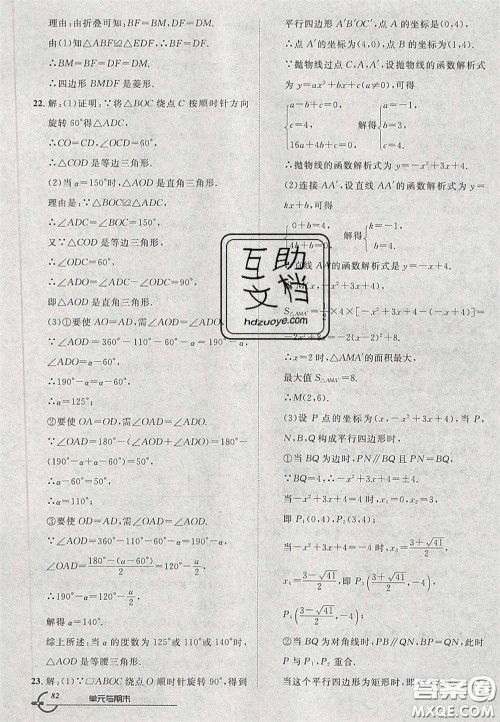 理由:由折叠可知:BF=BM,DF=DM.
由(1)知△ABF≌△EDF,
∴BM=BF=DM=DF.
∴四边形 BMDF 是菱形.
22.解:(1)证明:∵将△BOC 绕点 C 按顺时针方向
旋转 60°得△ADC,
∴CO=CD,∠OCD=60°,
∴△COD 是等边三角形.
(2)当 α=150°时,△AOD 是直角三角形.
理由是:∵△BOC≌△ADC,
∴∠ADC=∠BOC=150°,
又∵△COD 是等边三角形,
∴∠ODC=60°,
∴∠ADO=∠ADC-∠ODC=90°,
即△AOD 是直角三角形.
(3)①要使 AO=AD,需∠AOD=∠ADO.
∵∠AOD=360°-110°-60°-α=190°-α,
∠ADO=α-60°,
∴190°-α=α-60°,
∴α=125°;
②要使 OA=OD,需∠OAD=∠ADO.
∵∠OAD=180°-(∠AOD+∠ADO)=180°-
(190°-α+α-60°)=50°,
∴α-60°=50°,
∴α=110°;
③要使 OD=AD,需∠OAD=∠AOD.
∵∠AOD=360°-110°-60°-α=190°-α,
∠OAD=\frac{180°-(α-60°)}{2}=120°-\frac{α}{2},
∴190°-α=120°-\frac{α}{2},
解得 α=140°.
综上所述:当 α 的度数为 125°或 110°或 140°时,
△AOD 是等腰三角形.
23.解:(1)∵□ABOC 绕点 O 顺时针旋转 90°,得到
82 单元与期末
平行四边形 A′B′OC′,且点 A 的坐标为(0,4),
∴点 A′的坐标为(4,0).
∵抛物线过点 C,A,A′,设抛物线的函数解析式
为 y=ax²+bx+c(a≠0),可得
c=4, 解得 b=3,
16a+4b+c=0, c=4.
∴抛物线的函数解析式为 y=-x²+3x+4.
(2)连接 AA′,设直线 AA′的函数解析式为 y=
kx+b,可得
0+b=4, 解得 k=-1,
b=4.
AA′的函数解析式是 y=-x+4.
设 M(x,-x²+3x+4),
∴x=2 时,△AMA′的面积最大,
最大值 S△AMA′=8.
∴M(2,6).
(3)设 P 点的坐标为(x,-x²+3x+4),当 P,
N,B,Q 构成平行四边形时,
①当 BQ 为边时,PN∥BQ 且 PN=BQ,
当-x²+3x+4=4 时,x₁=0,x₂=3,
即 P₁(0,4),P₂(3,4);
当-x²+3x+4=-4 时,x₃=\frac{3+\sqrt{41}}{2},
②当 BQ 为对角线时,BP∥QN,BP=QN,此时